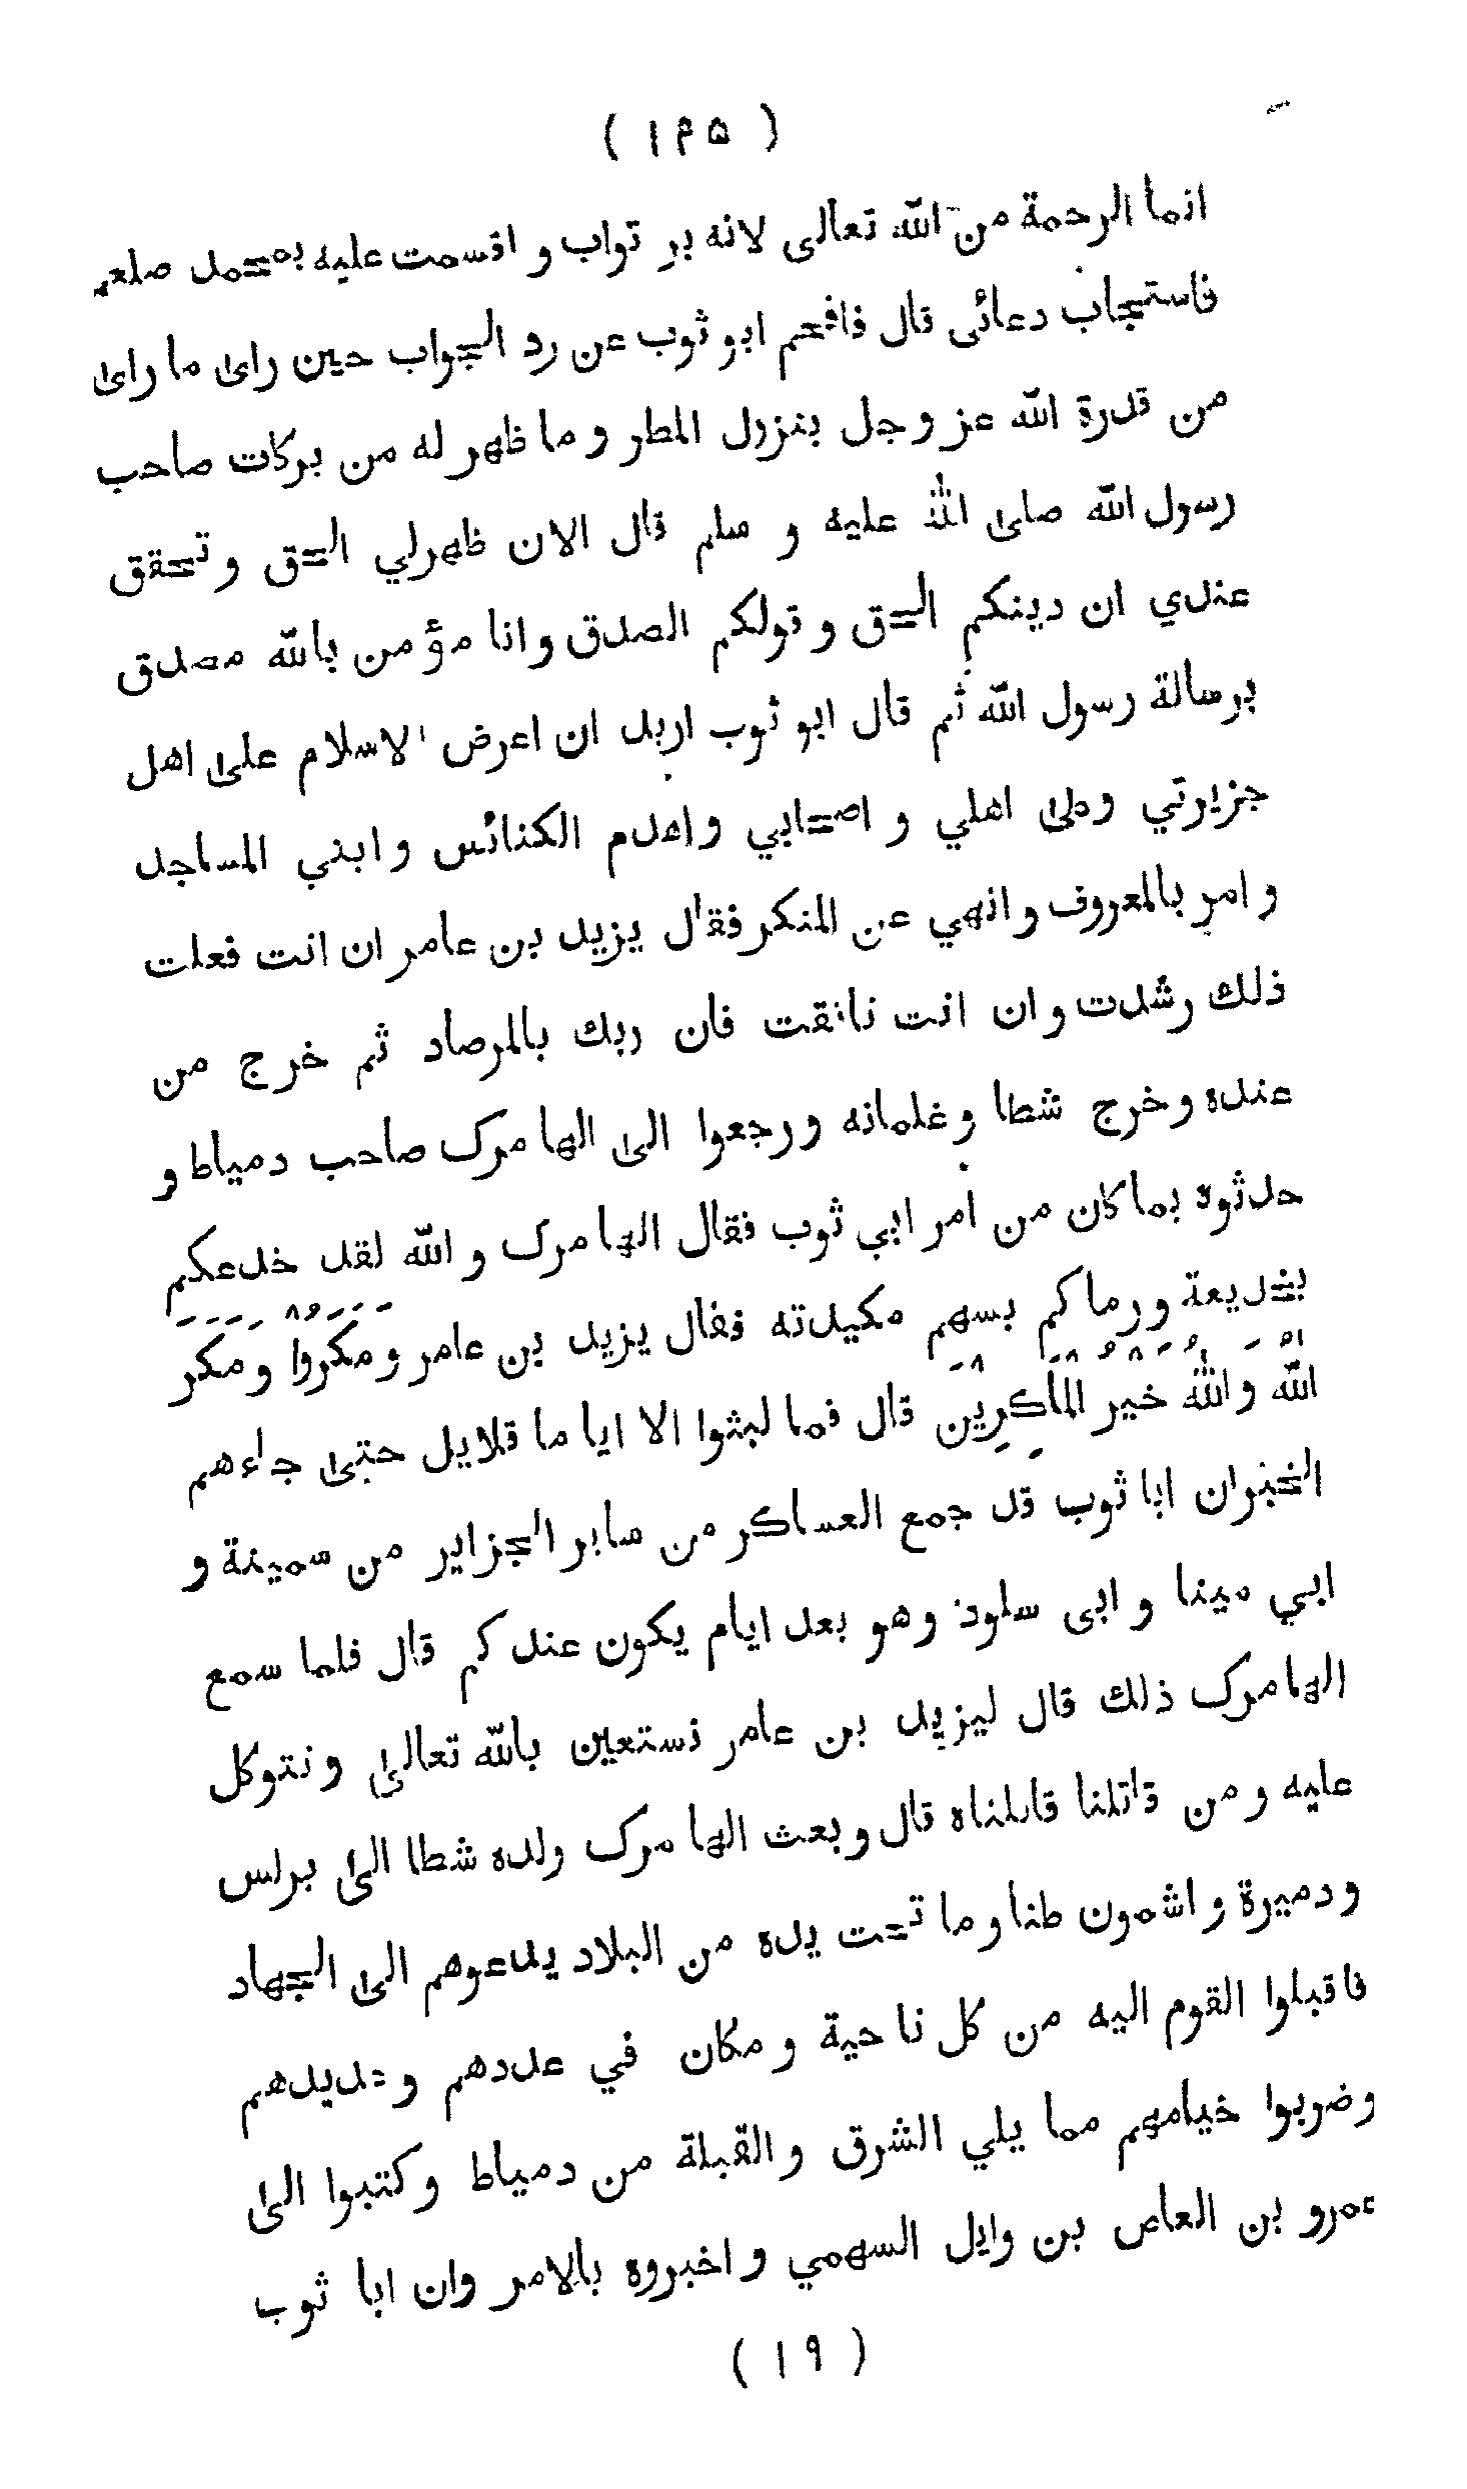 ( ١٤٥ )
انما الرحمة من الله تعالى لانه بر تواب و اقسمت عليه بمحمد صلعم
فاستجاب دعائى قال فافحم ابو ثوب عن رد الجواب حين راى ما راى
من قدرة الله عز و جل بنزول المطر و ما ظهر له من بركات صاحب
رسول الله صلى الله عليه و سلم قال الان ظهرلي الحق و تحقق
عندي ان دينكم الحق و قولكم الصدق و انا مؤمن بالله مصدق
برسالة رسول الله ثم قال ابو ثوب اريد ان اعرض الاسلام على اهل
جزيرتي وعلى اهلي و اصحابي و اهدم الكنائس و ابني المساجد
و امر بالمعروف و انهي عن المنكر فقال يزيد بن عامر ان انت فعلت
ذلك رشدت و ان انت نافقت فان ربك بالمرصاد ثم خرج من
عنده و خرج شطا و غلمانه و رجعوا الى الهامرك صاحب دمياط و
حدثوه بما كان من امر ابي ثوب فقال الهامرك و الله لقد خدعكم
بخديعة و رماكم بسهم مكيدته فقال يزيد بن عامر و مَكَرُوْا وَ مَكَرَ
اللّٰهُ وَ اللّٰهُ خَيْرُ الْمَاكِرِيْنَ قال فما لبثوا الا اياما قلايل حتى جاءهم
الخبر ان ابا ثوب قد جمع العساكر من ساير الجزاير من سمينة و
ابي مينا و ابى سلود و هو بعد ايام يكون عندكم قال فلما سمع
الهامرك ذلك قال ليزيد بن عامر نستعين بالله تعالى و نتوكل
عليه و من قاتلنا قاتلناه قال و بعث الهامرك ولده شطا الى برلس
و دميرة و اشمون طنا و ما تحت يده من البلاد يدعوهم الى الجهاد
فاقبلوا القوم اليه من كل ناحية و مكان في عددهم و حديدهم
و ضربوا خيامهم مما يلي الشرق و القبلة من دمياط و كتبوا الى
عمرو بن العاص بن وايل السهمي و اخبروه بالامر و ان ابا ثوب
( ١٩ )